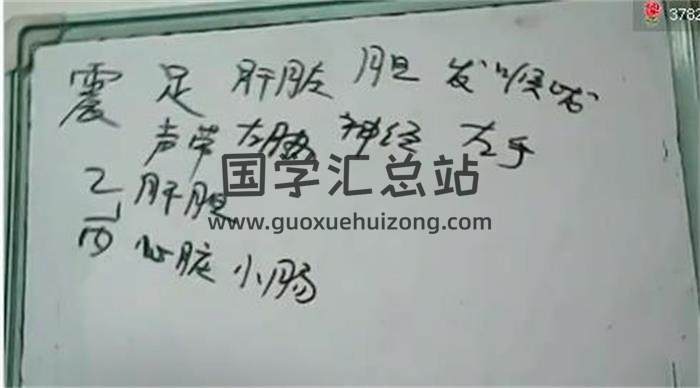 3782
震 足 肝脏 胆 发 喉咙
声带 左胁 神经 左手
国学汇总站
乙 肝胆
www.guoxuehuizong.com
丙 心脏 小肠